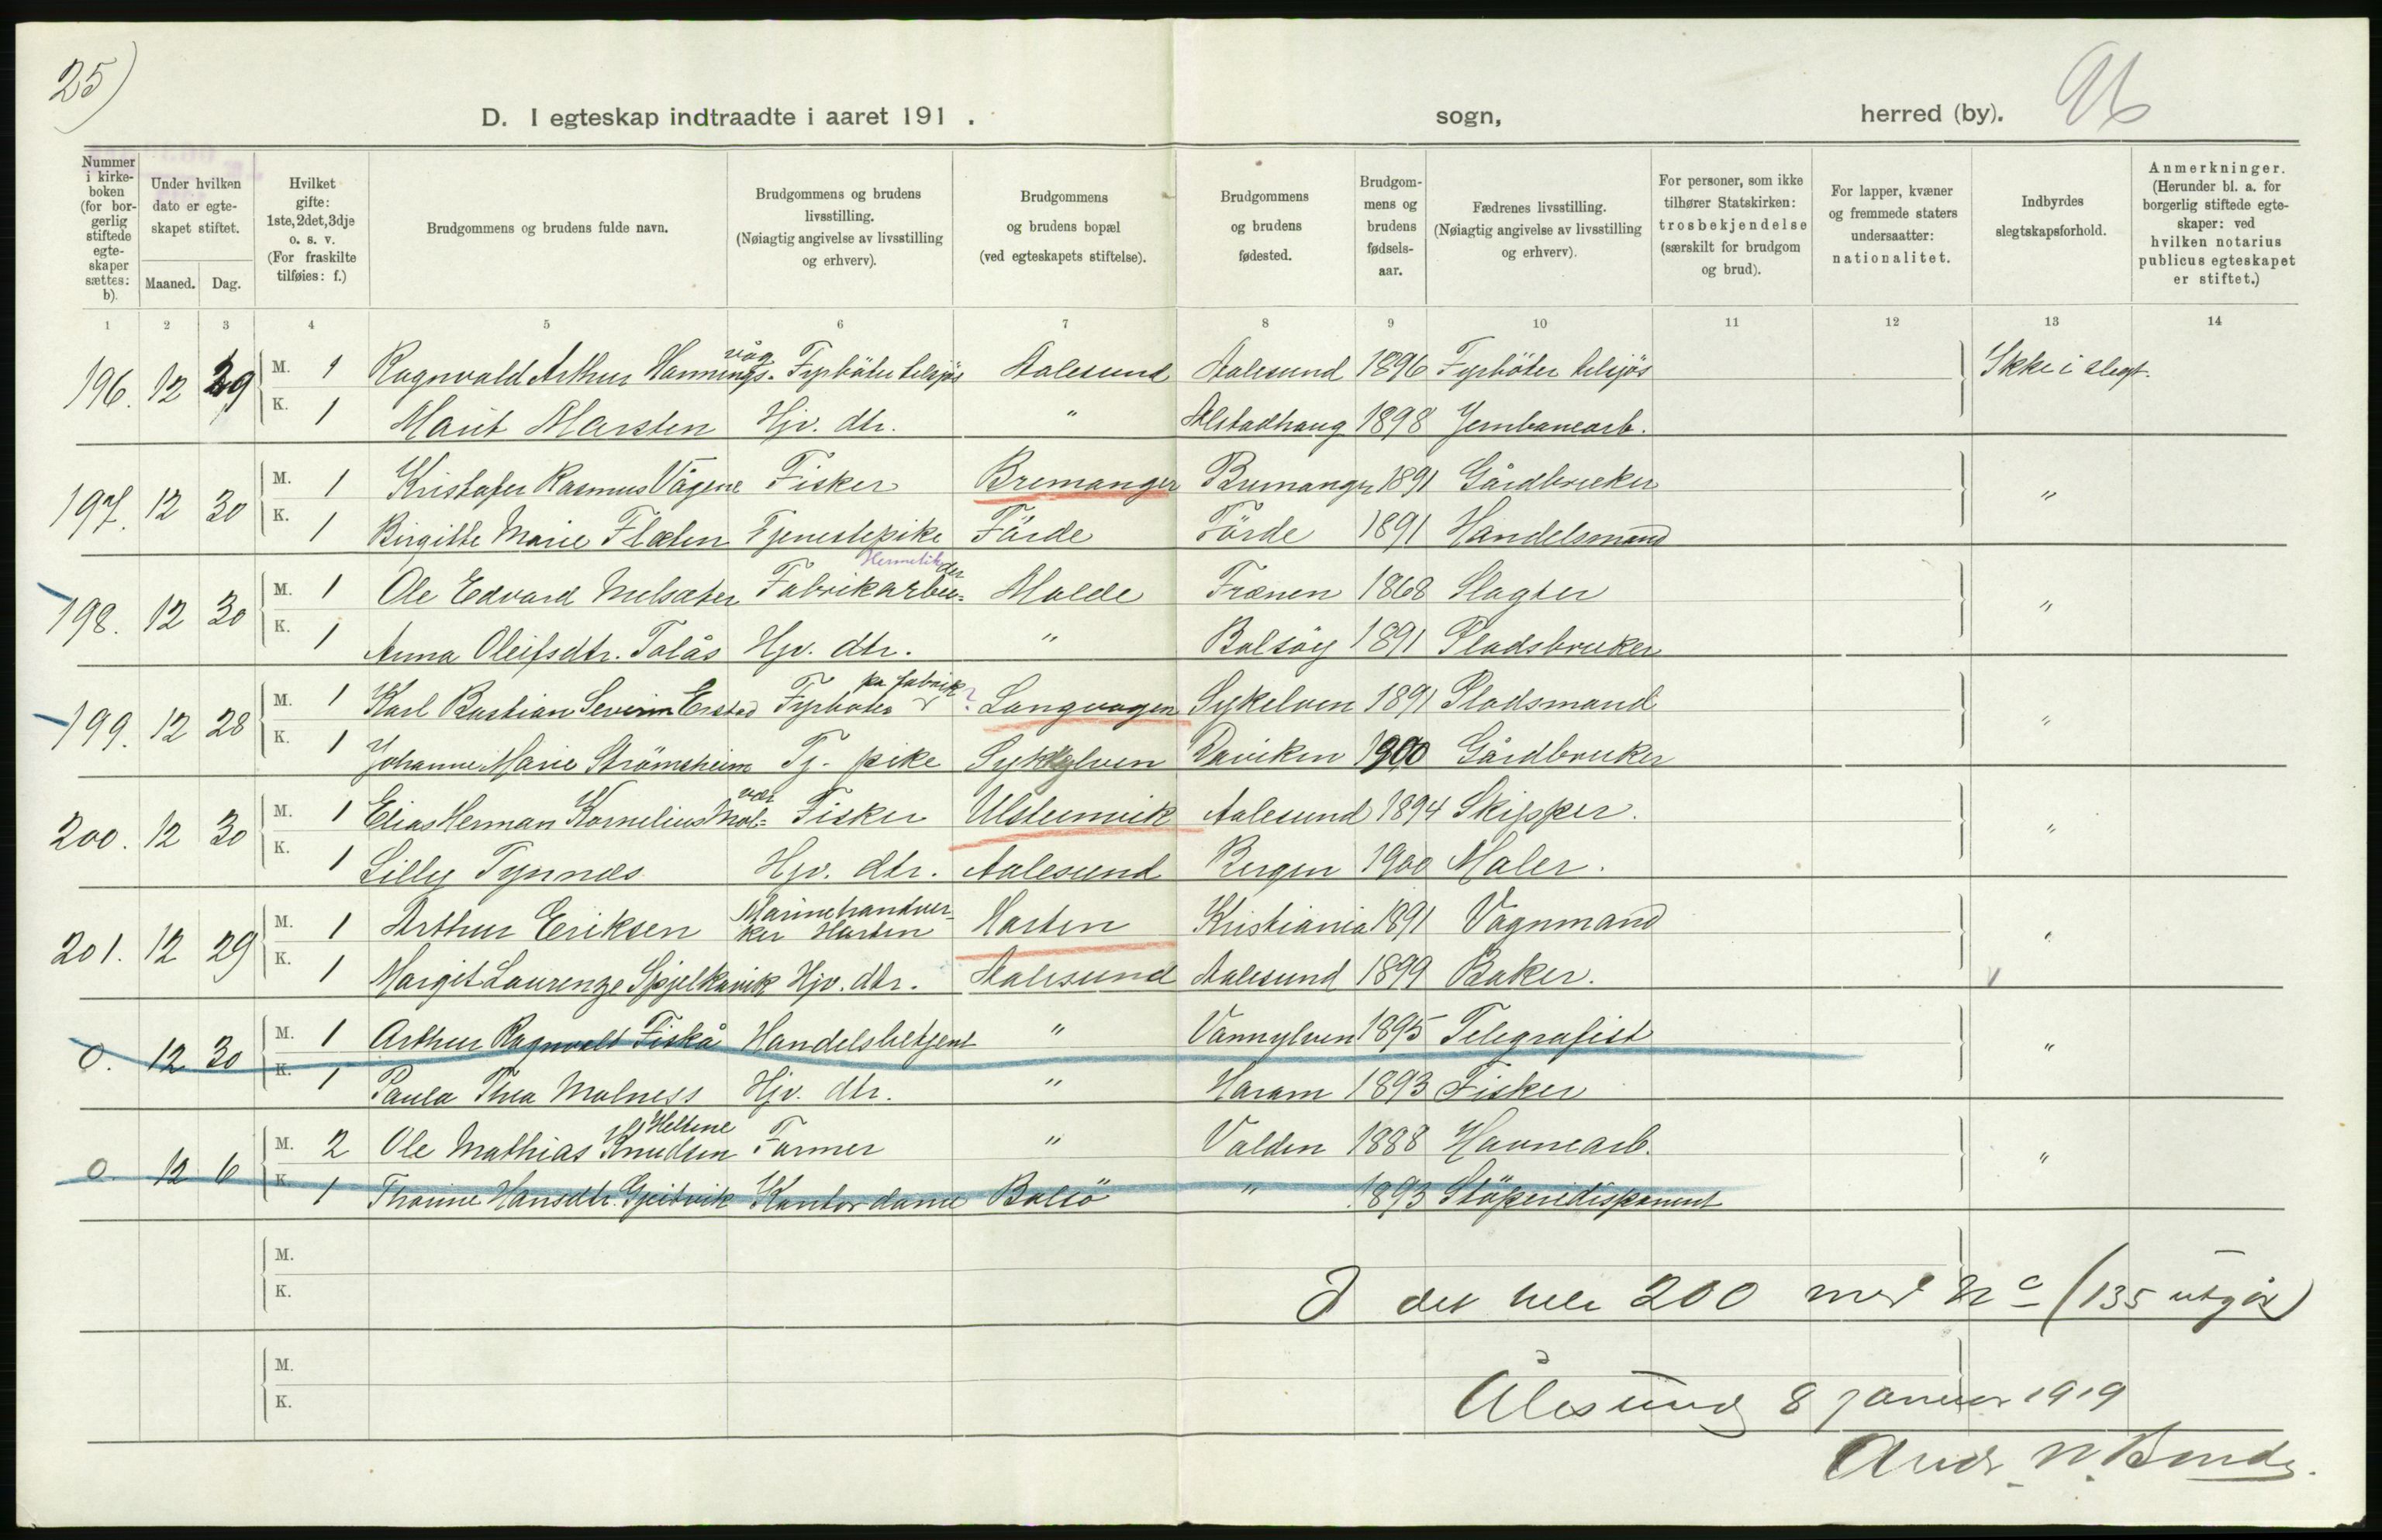 25)
D. I egteskap indtraadte i aaret 191 .
sogn,
herred (by).
Nummer i kirke-boken (for bor-gerlig stiftede egte-skaper sættes: b).
Under hvilken dato er egte-skapet stiftet.
Maaned.
Dag.
Hvilket gifte: 1ste, 2det, 3dje o. s. v. (For fraskilte tilføies: f.)
Brudgommens og brudens fulde navn.
Brudgommens og brudens livsstilling. (Nøiagtig angivelse av livsstilling og erhverv).
Brudgommens og brudens bopæl (ved egteskapets stiftelse).
Brudgommens og brudens fødested.
Brudgom-mens og brudens fødsels-aar.
Fædrenes livsstilling. (Nøiagtig angivelse av livsstilling og erhverv).
For personer, som ikke tilhører Statskirken: trosbekjendelse (særskilt for brudgom og brud).
For lapper, kvæner og fremmede staters undersaatter: nationalitet.
Indbyrdes slegtskapsforhold.
Anmerkninger. (Herunder bl. a. for borgerlig stiftede egte-skaper: ved hvilken notarius publicus egteskapet er stiftet.)
1 2 3 4 5 6 7 8 9 10 11 12 13 14
196. 12 29 M. 1 Ragnvald Arthur Hannings- våg Fyrbøter tilsjøs Aalesund Aalesund 1896 Fyrbøter tilsjøs Ikke i slegt.
K. 1 Marit Marsten Hjv. dtr. " Alstadhaug 1898 Jernbanearb.
197. 12 30 M. 1 Kristofer Rasmus Vågene Fisker Bremanger Bremanger 1891 Gårdbruker "
K. 1 Birgitte Marie Flæten Tjenestepike Førde Førde 1891 Handelsmand
198. 12 30 M. 1 Ole Edvard Melsæter Hermetik Fabrikarbei= der Molde Frænen 1868 Slagter "
K. 1 Anna Oleifsdtr. Talås Hjv. dtr. " Bolsøy 1891 Pladsbruker
199. 12 28 M. 1 Karl Bastian Severin Erstad Fyrbøter på fabrik ? Langvagen Sykelven 1891 Pladsmand "
K. 1 Johanne Marie Strømsheim Tj. pike Sykkylven Daviken 1900 Gårdbruker
200. 12 30 M. 1 Elias Herman Kornelius Mol= vær Fisker Ulsteinvik Aalesund 1894 Skipper. "
K. 1 Lilly Tynnæs Hjv. dtr. Aalesund Bergen 1900 Maler.
201. 12 29 M. 1 Arthur Eriksen Marinehandver-ker Horten Horten Kristiania 1891 Vognmand "
K. 1 Margit Laurenze Spjelkavik Hjv. dtr. Aalesund Aalesund 1899 Baker.
0. 12 30 M. 1 Arthur Ragnvald Fiskå Handelsbetjent " Vannylven 1895 Telegrafist "
K. 1 Paula Thea Molness Hjv. dtr. " Haram 1893 Fisker
0. 12 6 M. 2 Ole Mathias Knudsen Farmer " Volden 1888 Havnearb. "
K. 1 Hansdtr. Gjeitvik Kontordame Bolsø " 1893 Støperidisponent
M.
K.
I det hele 200 med No (135 utgår)
M.
K.
Ålesund 8 januar 1919